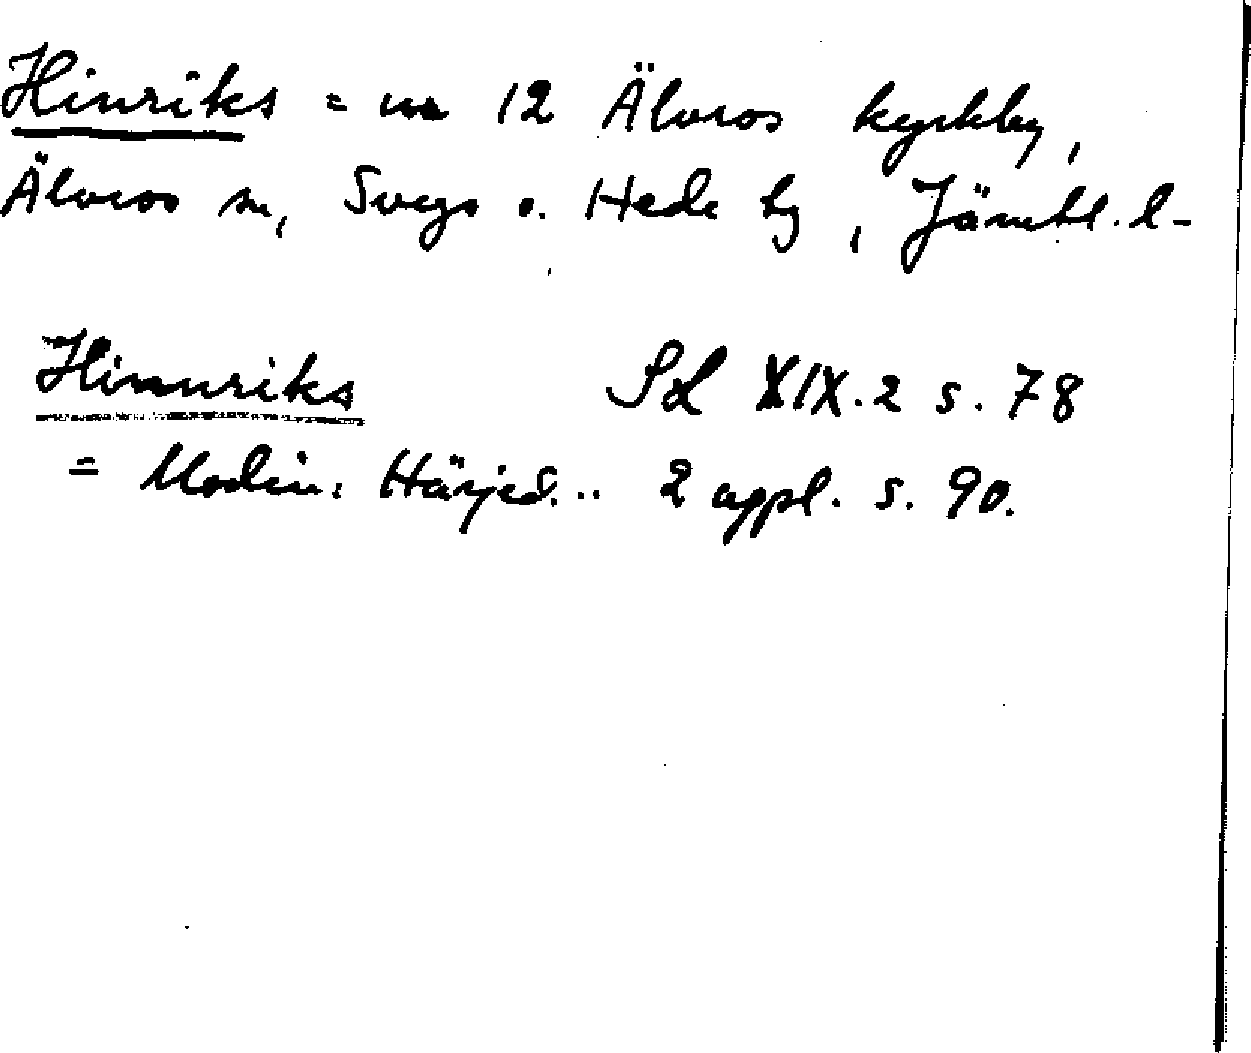 Hinriks = nr 12 Älvros kyrkby,
Älvros sn, Svegs o. Hede tg, Jämtl. l-
Hinnriks Sd XIX.2 s. 78
= Modin: Härjed... 2 uppl. s. 90.